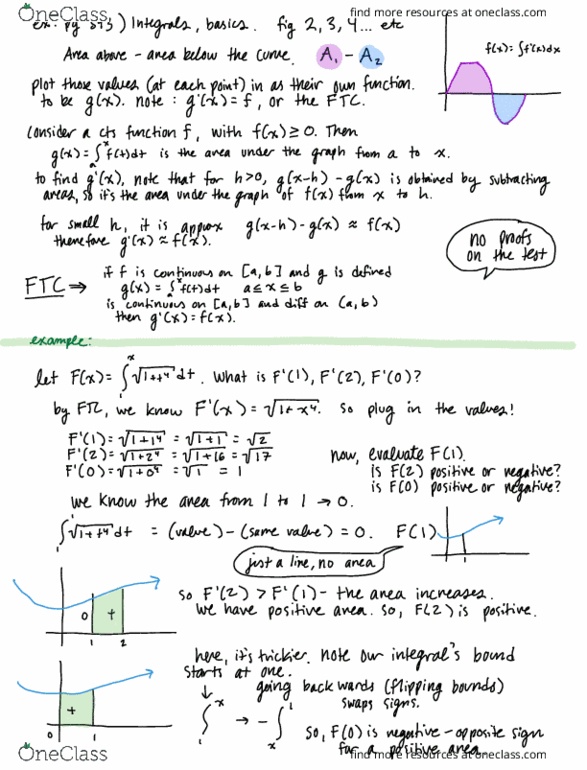 find more resources at oneclass.com
OneClass
Integrals, basics. fig 2, 3, 4... etc
f(x) = ∫f'(x)dx
Area above - area below the curve. A₁ - A₂
plot those values (at each point) in as their own function.
to be g(x). note: g'(x) = f, or the FTC.
Consider a cts function f, with f(x) ≥ 0. Then
g(x) = ∫ₐˣ f(t)dt is the area under the graph from a to x.
to find g'(x), note that for h>0, g(x-h) - g(x) is obtained by subtracting
areas, so it's the area under the graph of f(x) from x to h.
for small h, it is approx g(x-h) - g(x) ≈ f(x)
therefore g'(x) ≈ f(x).
no proofs
on the test
FTC ⇒
if f is continuous on [a,b] and g is defined
g(x) = ∫ₐˣ f(t)dt a ≤ x ≤ b
is continuous on [a,b] and diff on (a,b)
then g'(x) = f(x).
example:
let F(x) = ∫₁ˣ √1+t⁴ dt. What is F'(1), F'(2), F'(0)?
by FTC, we know F'(x) = √1+x⁴. so plug in the values!
F'(1) = √1+1⁴ = √1+1 = √2
F'(2) = √1+2⁴ = √1+16 = √17
F'(0) = √1+0⁴ = √1 = 1
now, evaluate F(1).
is F(2) positive or negative?
is F(0) positive or negative?
we know the area from 1 to 1 → 0.
∫₁¹ √1+t⁴ dt = (value) - (same value) = 0. F(1)
1
just a line, no area
so F'(2) > F'(1) - the area increases.
we have positive area. so, F(2) is positive.
0 +
1 2
here, it's trickier. note our integral's bound
starts at one.
going backwards (flipping bounds)
swaps signs.
∫₁ˣ → -∫ₓ¹
so, F(0) is negative - opposite sign
for a positive area.
+
0 1
OneClass
find more resources at oneclass.com